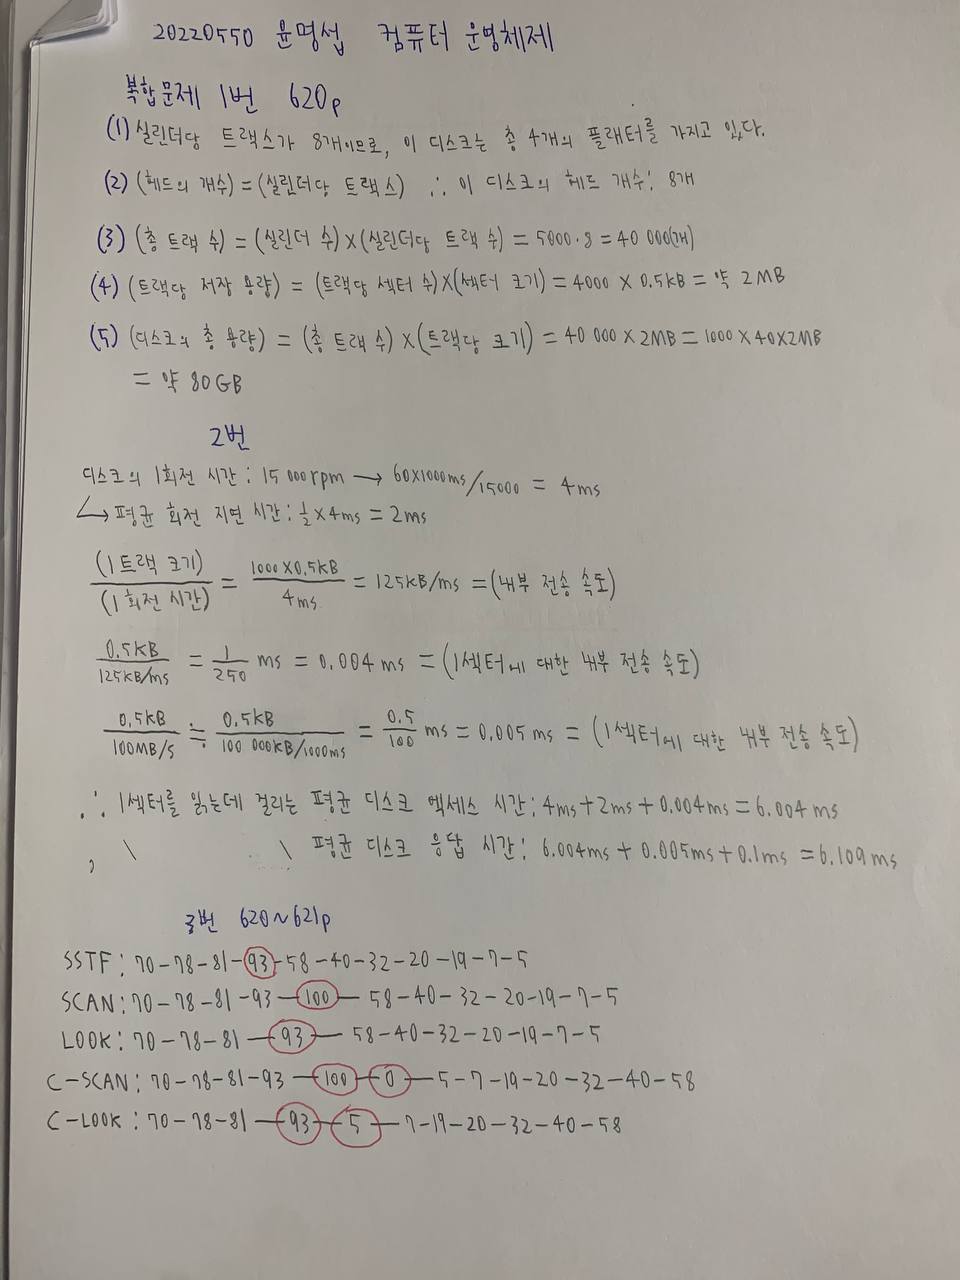 20220550 윤명섭 컴퓨터 운영체제
복합문제 1번 620p
(1) 실린더당 트랙스가 8개이므로, 이 디스크는 총 4개의 플래터를 가지고 있다.
(2) (헤드의 개수) = (실린더당 트랙스) ∴ 이 디스크의 헤드 개수: 8개
(3) (총 트랙 수) = (실린더 수)×(실린더당 트랙 수) = 5000·8 = 40 000(개)
(4) (트랙당 저장 용량) = (트랙당 섹터 수)×(섹터 크기) = 4000 × 0.5kB = 약 2MB
(5) (디스크의 총 용량) = (총 트랙 수) × (트랙당 크기) = 40 000 × 2MB = 1000 × 40 × 2MB
= 약 80GB
2번
디스크의 1회전 시간: 15 000rpm → 60×1000ms/15000 = 4ms
↳ 평균 회전 지연 시간: 1/2 × 4ms = 2ms
(1트랙 크기)/(1회전 시간) = 1000×0.5kB/4ms = 125kB/ms = (내부 전송 속도)
0.5kB/125kB/ms = 1/250 ms = 0.004 ms = (1섹터에 대한 내부 전송 속도)
0.5kB/100MB/s ≒ 0.5kB/100 000kB/1000ms = 0.5/100 ms = 0.005 ms = (1섹터에 대한 내부 전송 속도)
∴ 1섹터를 읽는데 걸리는 평균 디스크 엑세스 시간: 4ms + 2ms + 0.004ms = 6.004 ms
, \ \ 평균 디스크 응답 시간: 6.004ms + 0.005ms + 0.1ms = 6.109 ms
3번 620~621p
SSTF: 70-78-81-93-58-40-32-20-19-7-5
SCAN: 70-78-81-93-100-58-40-32-20-19-7-5
LOOK: 70-78-81-93-58-40-32-20-19-7-5
C-SCAN: 70-78-81-93-100-0-5-7-19-20-32-40-58
C-LOOK: 70-78-81-93-5-7-19-20-32-40-58